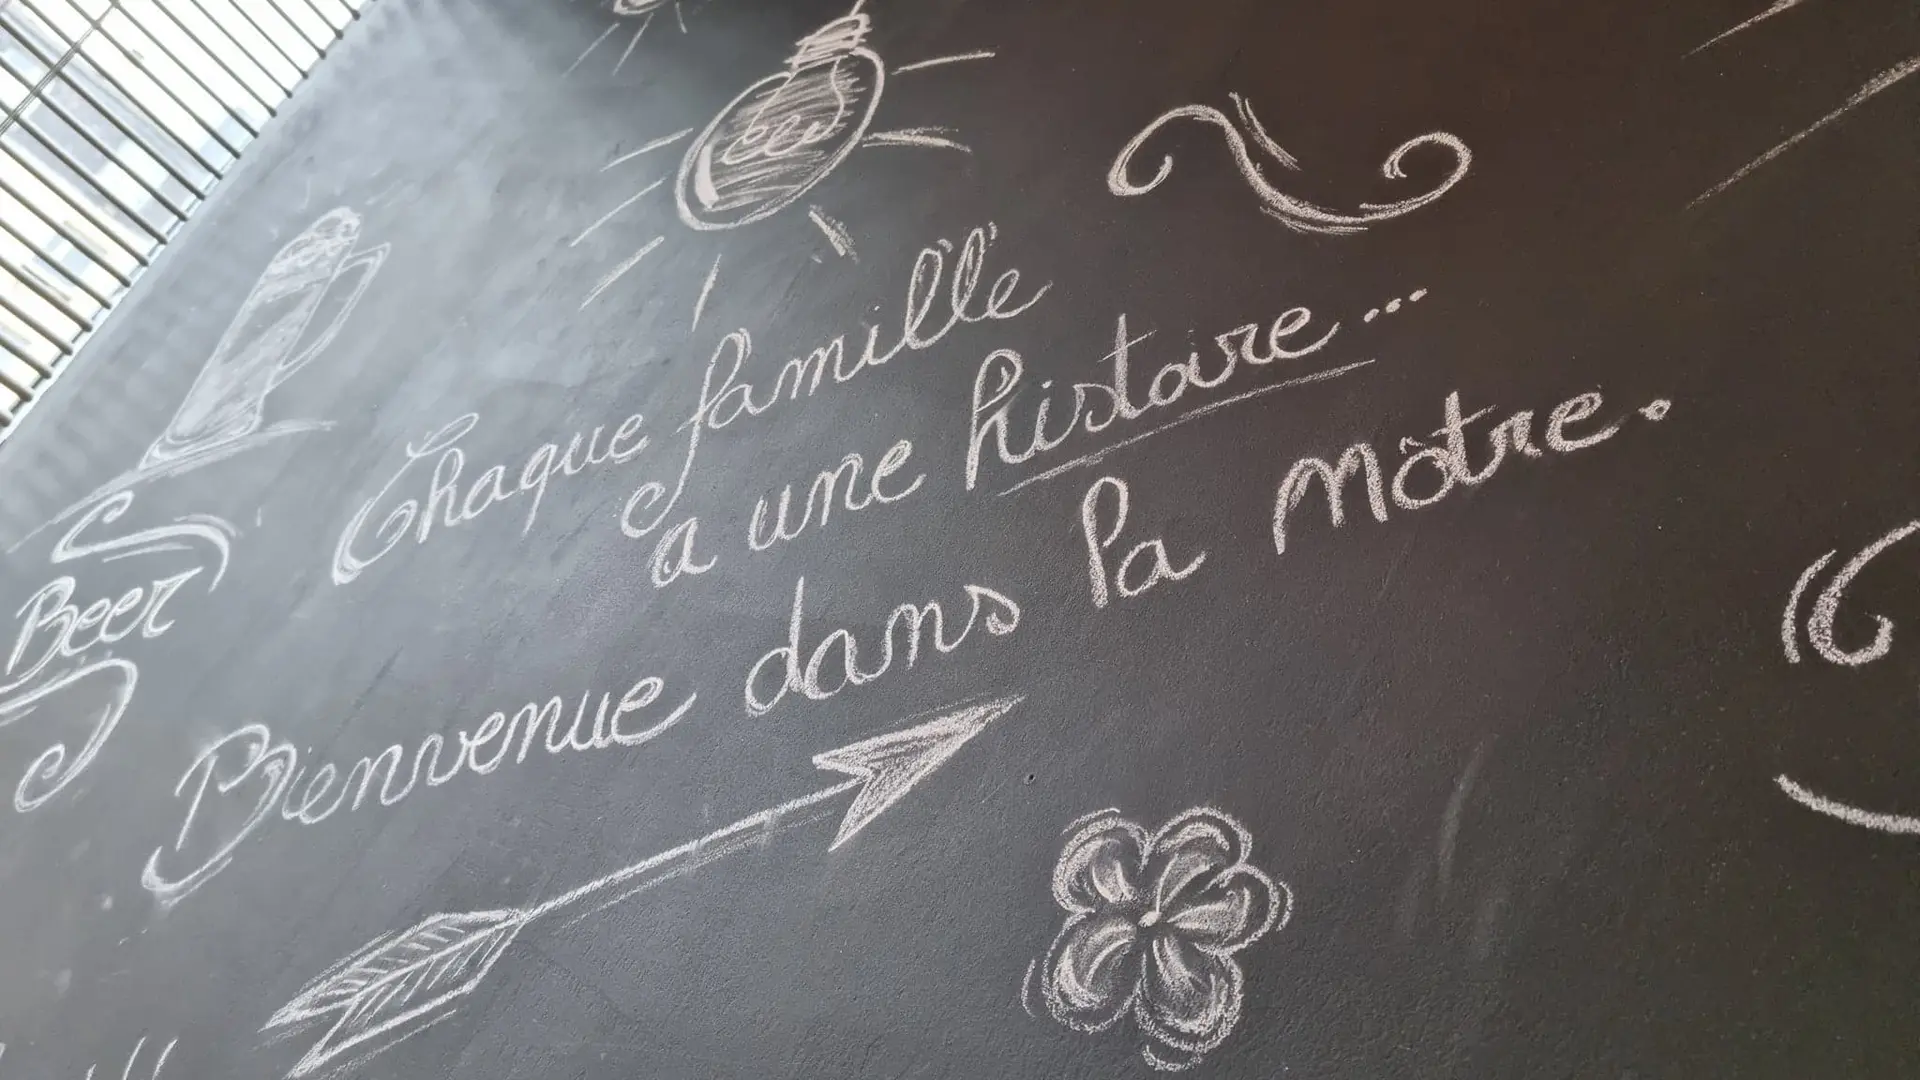 Chaque famille
a une histoire...
Bienvenue dans la nôtre.
Beer